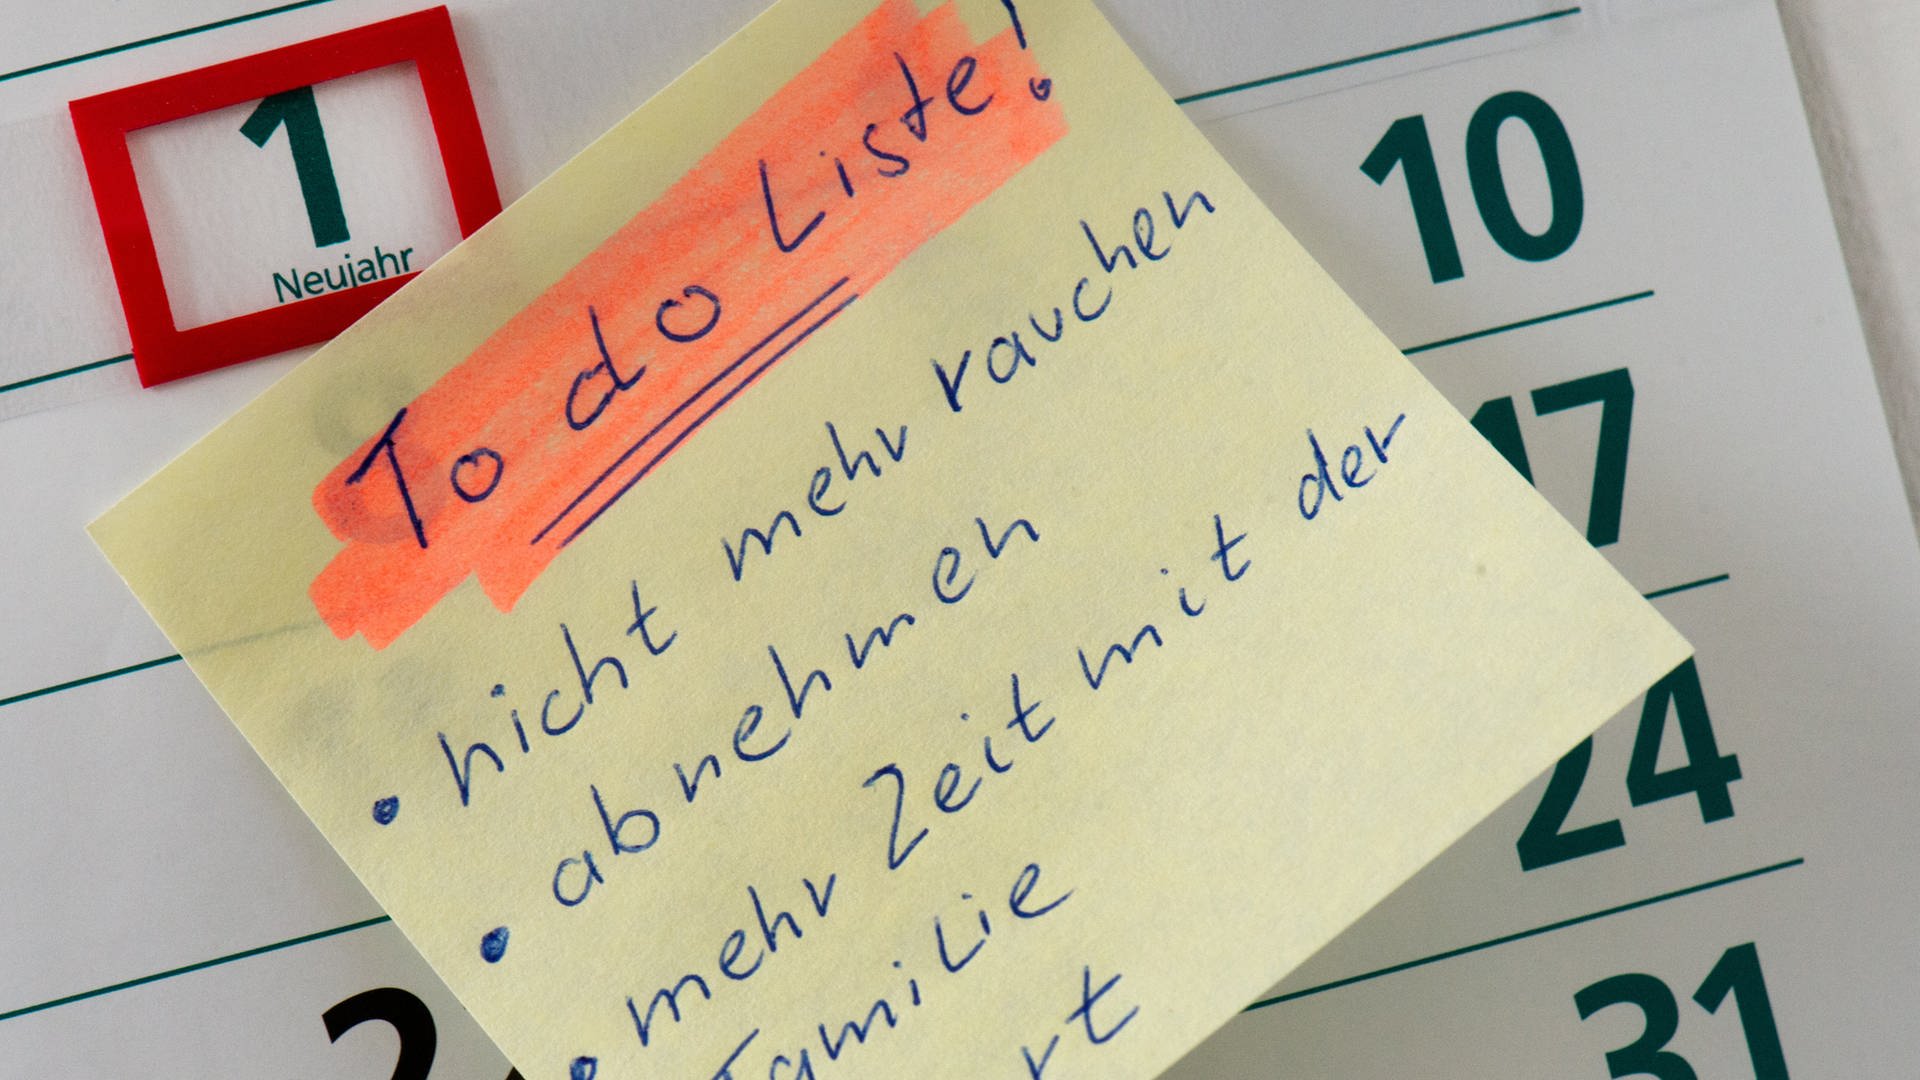 1
Neujahr
To do Liste!
• nicht mehr rauchen
• abnehmen
• mehr Zeit mit der
Familie
10
17
24
31